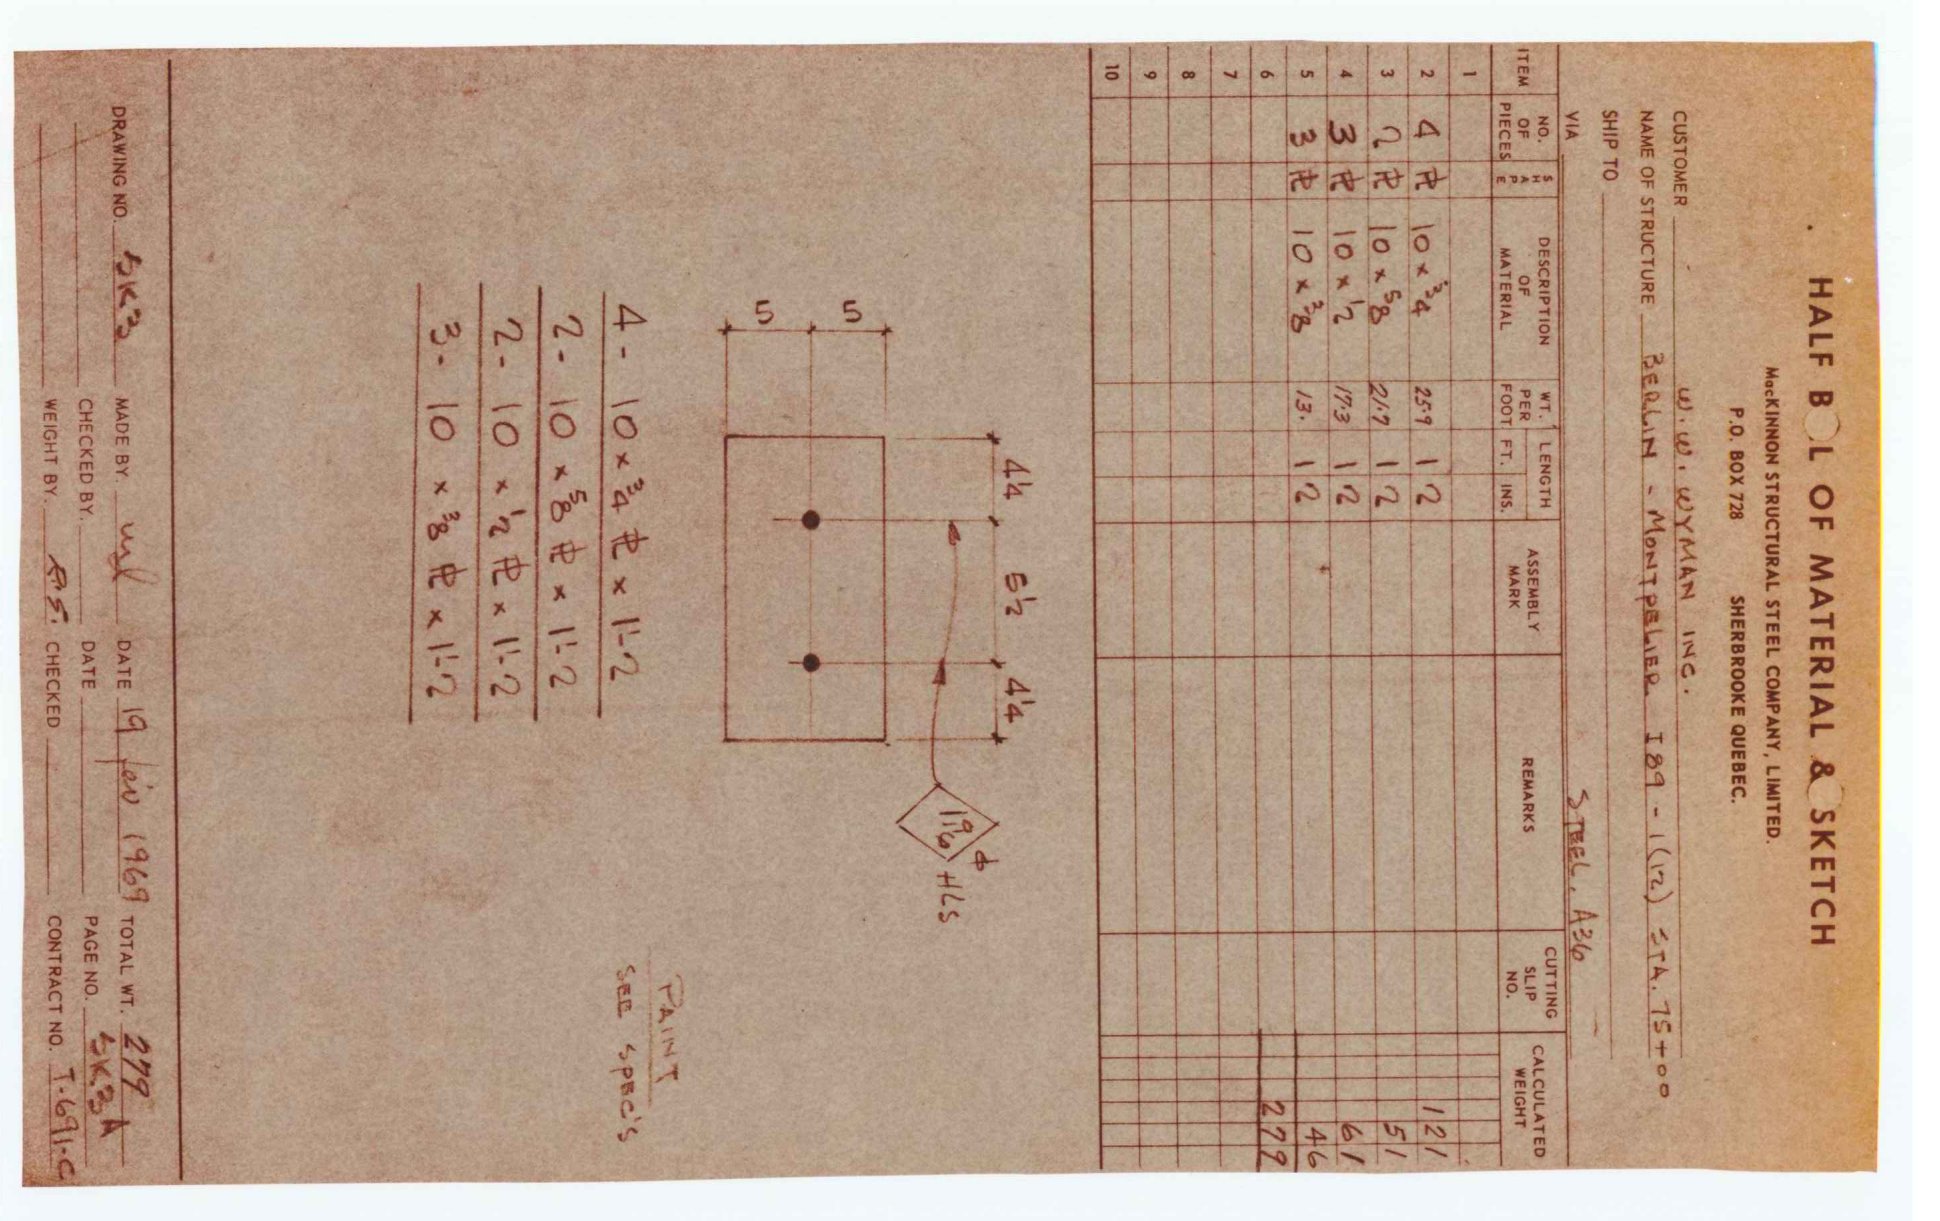 HALF B L OF MATERIAL & SKETCH
MacKINNON STRUCTURAL STEEL COMPANY, LIMITED.
P.O. BOX 728 SHERBROOKE QUEBEC.
CUSTOMER W. W. WYMAN INC.
NAME OF STRUCTURE BERLIN - MONTPELIER I 89 - 1(12) STA. 75+00
SHIP TO
VIA STEEL. A36
ITEM NO. OF PIECES SHAPE DESCRIPTION OF MATERIAL WT. PER FOOT LENGTH FT. INS. ASSEMBLY MARK REMARKS CUTTING SLIP NO. CALCULATED WEIGHT
1
2 4 PL 10 x 3/4 25.9 1 2 121
3 2 PL 10 x 5/8 21.7 1 2 51
4 3 PL 10 x 1/2 17.3 1 2 61
5 3 PL 10 x 3/8 13. 1 2 46
6 279
7
8
9
10
4 1/4 5 1/2 4 1/4
1 9/16 φ HLS
5 5
4 - 10 x 3/4 PL x 1'-2
2 - 10 x 5/8 PL x 1'-2
2 - 10 x 1/2 PL x 1'-2
3 - 10 x 3/8 PL x 1'-2
PAINT
SEE SPEC'S
DRAWING NO. SK3 MADE BY. DATE 19 fév 1969 TOTAL WT. 279
CHECKED BY. DATE PAGE NO. SK.3A
WEIGHT BY. R.S. CHECKED CONTRACT NO. T.691.C